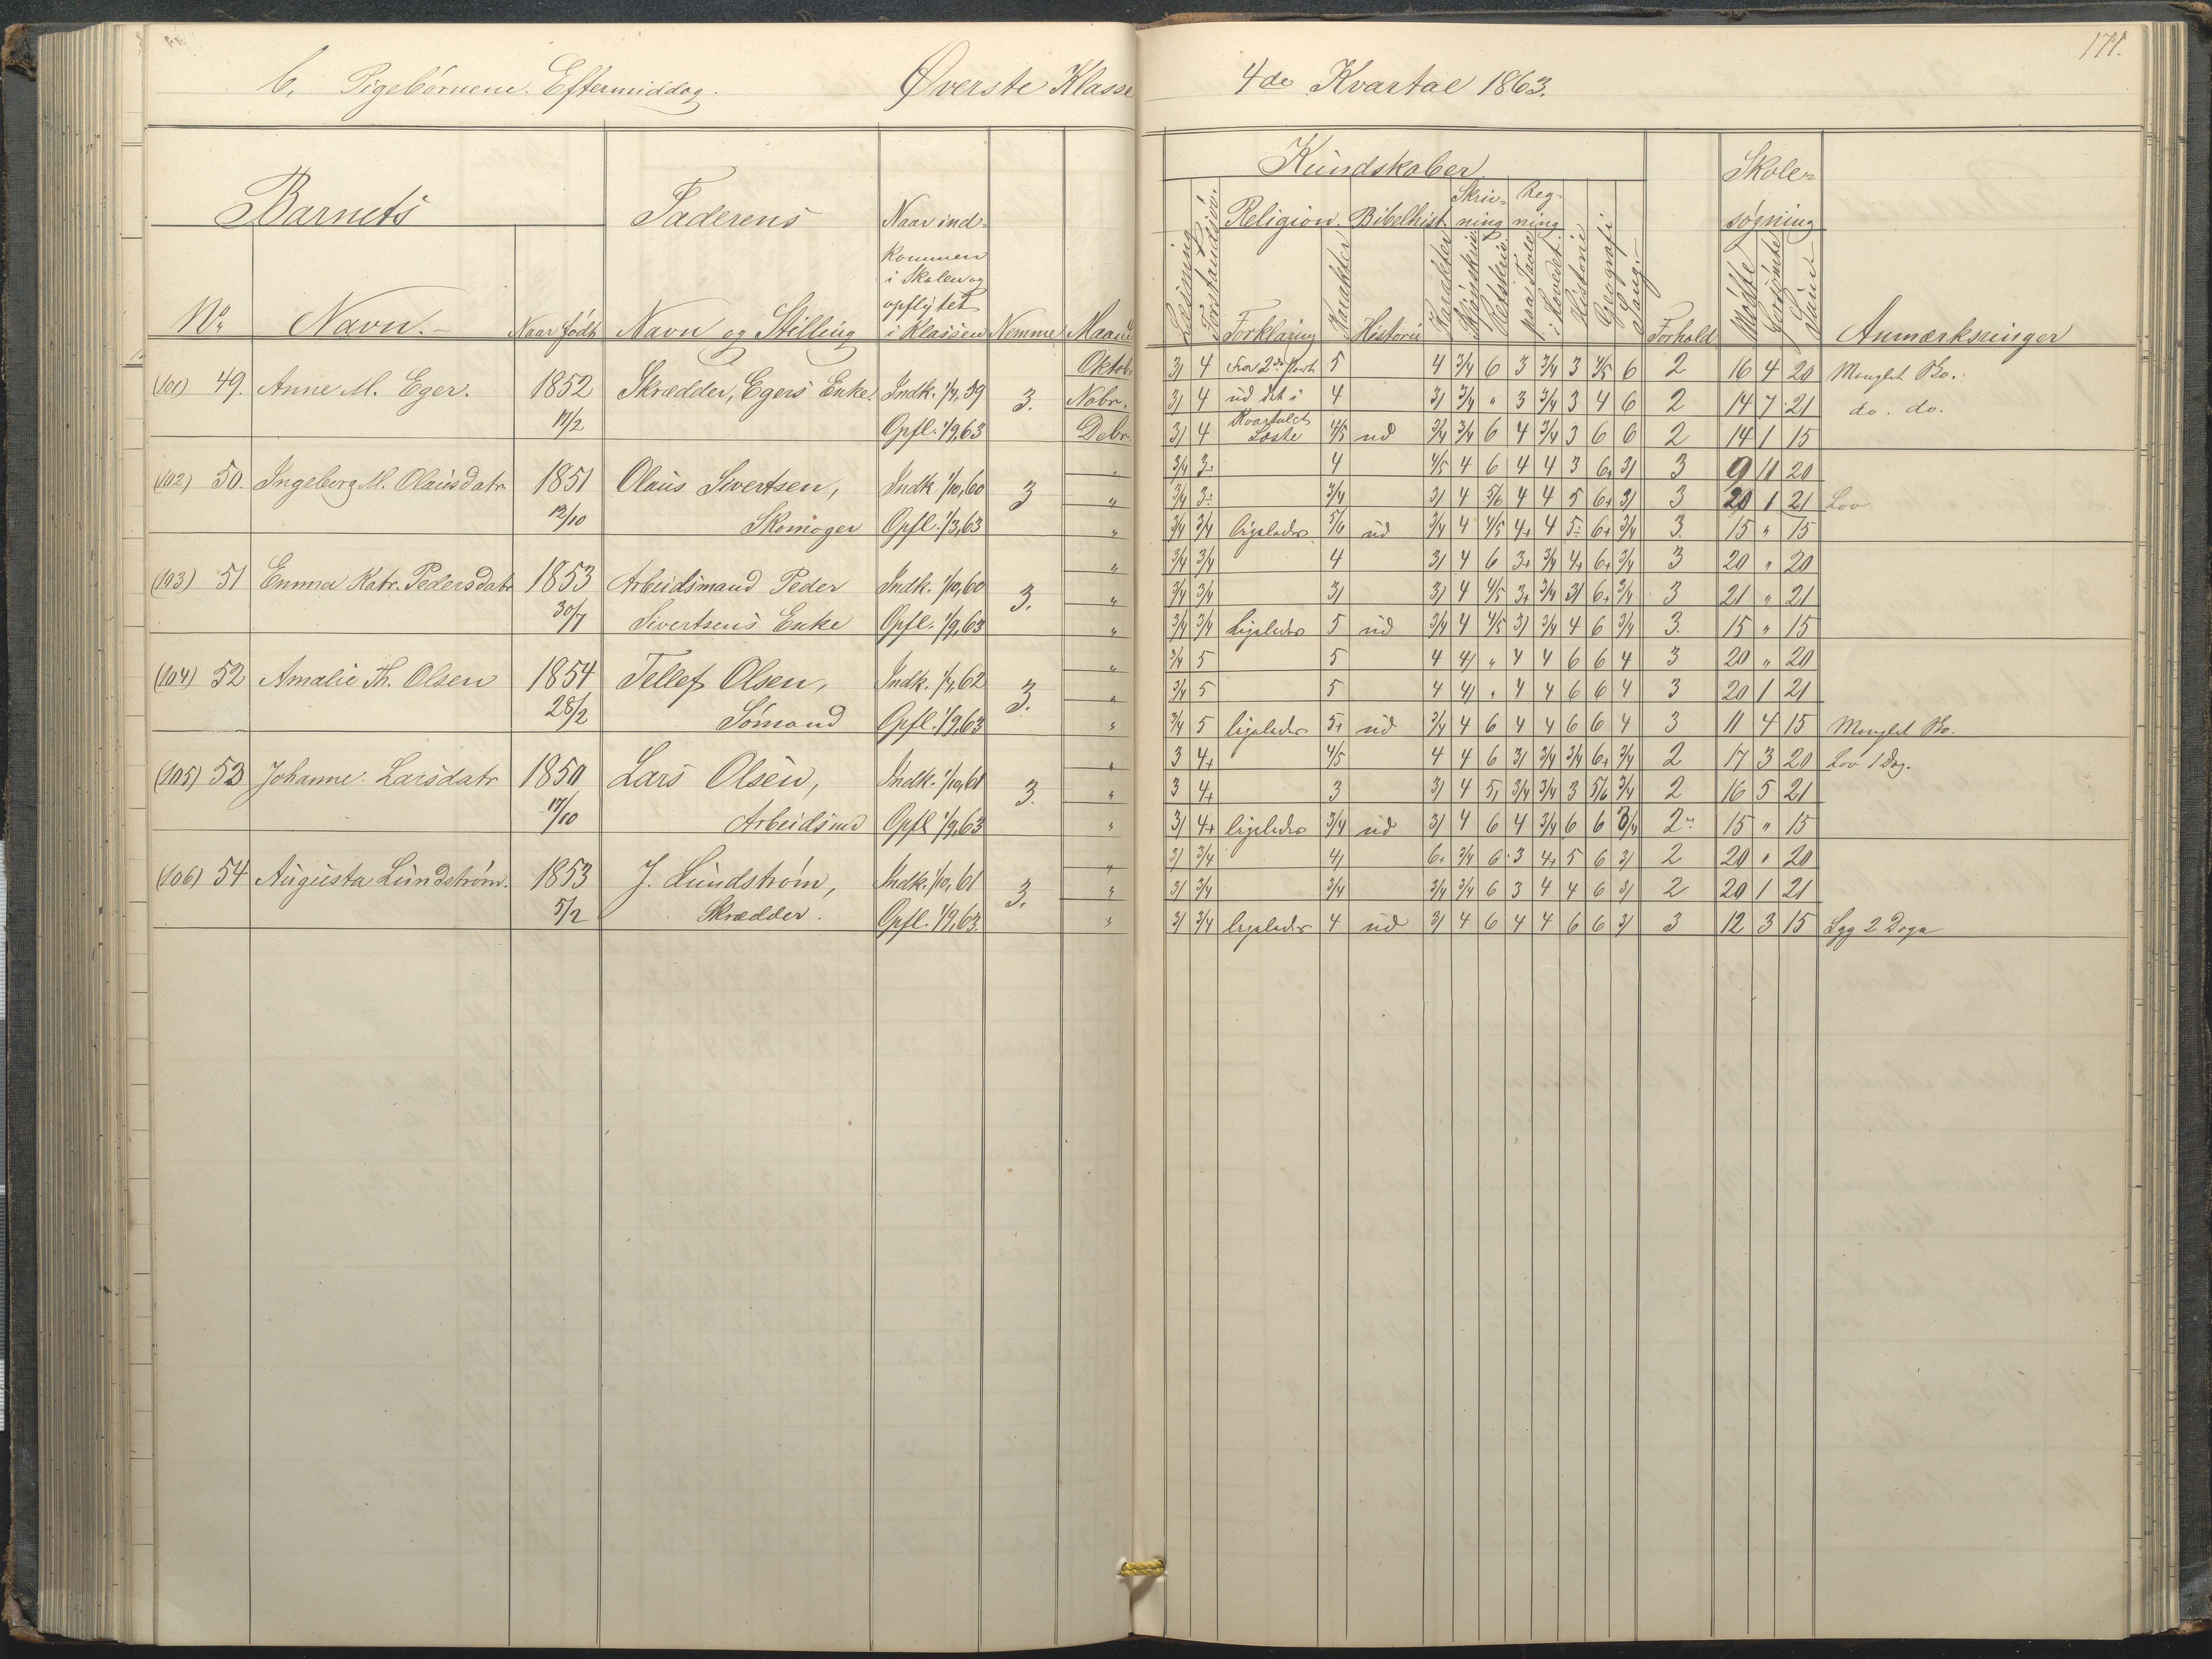 Pigebørnene. Eftermiddag. Øverste Klasse 4de Kvartal 1863. 171.
Barnets Faderens Naar ind-
kommen
i Skolen og
opflyttet
No. Navn. Naar født Navn og Stilling i Klassen Nemme Maaned
Kundskaber Skole-
Religion. Bibelhist. Skriv- Reg-
ning ning søgning
Læsning Forklaring Karakter Historie Karakter Skjønskrivn. Retskrivn. paa Tavle i Hovedet Historie Geografi Sang Forhold Mødte Forsømte Sum Anmærkninger
(101) 49. Anne M. Eger. 1852 Skrædder, Egers Enke. Indk. 3. Oktob. 3/ 4 5 4 3/4 6 3 3/4 3 4/5 6 2 16 4 20 Manglet
17/2 Opfl. 1/9,63 Nobr. 3/ 4 ud det i 4 3/ 3/4 " 3 3/4 3 4 6 2 14 7 21 do. do.
Debr. 3/ 4 Kvartalet Læste 4/5 ud 3/4 3/4 6 4 3/4 3 6 6 2 14 1 15
(102) 50. Ingeborg M. Olausdatr. 1851 Olaus Sivertsen, Indk 1/10,60 3 " 4 4/5 4 6 4 4 3 6+ 3/ 3 9 11 20
12/10 Skomager Opfl. 1/3,63 " 3/4 3/4 3/ 4 5/6 4 4 5 6+ 3/ 3 20 1 21 Lov
" 3/4 3/4 ligeledes 5/6 ud 3/4 4 4/5 4+ 4 6+ 3/4 3. 15 " 15
(103) 51 Emma Katr. Pedersdatr 1853 Arbeidsmand Peder Indk. 1/10,60 3. " 3/4 3/4 4 3/ 4 6 3+ 3/4 4+ 6+ 3/4 3 20 " 20
30/7 Sivertsens Enke Opfl. 1/9,63 " 3/4 3/4 3/ 3/ 4 4/5 3+ 3/4 3/ 6+ 3/4 3 21 " 21
" 3/4 3/4 Ligeledes 5 ud 3/4 4 4/5 3/ 3/4 4 6 3/4 3. 15 " 15
(104) 52 Amalie Th. Olsen 1854 Tellef Olsen, Indk. 3. " 3/4 5 5 4 4/ " 4 4 6 6 4 3 20 " 20
28/2 Sømand Opfl. 1/9,63 " 3/4 5 5 4 4/ " 4 4 6 6 4 3 20 1 21
" 3/4 5 ligeledes 5+ ud 3/4 4 6 4 4 6 6 4 3 11 4 15 Manglet
(105) 53 Johanne Larsdatr 1850 Lars Olsen, Indk. 1/10,61 3. " 3 4+ 4/5 4 4 6 3/ 3/4 3/4 6+ 3/4 2 17 3 20 Lov 1 Dag.
17/10 Arbeidsmd Opfl 1/9,63 " 3 4+ 3 3/ 4 5/ 3/4 3/4 3 5/6 3/4 2 16 5 21
" 3/ 4+ ligeledes 3/4 ud 3/ 4 6 4 3/4 6 6 3/4 2 15 " 15
(106) 54 Augusta Lundstrøm. 1853 J. Lundstrøm, Indk. 1/10,61 3. " 3/ 3/4 4/ 6+ 3/4 6 3 4+ 5 6 3/ 2 20 " 20
5/2 Skrædder. Opfl. 1/9,63. " 3/ 3/4 3/4 3/4 3/4 6 3 4 4 6 3/ 2 20 1 21
" 3/ 3/4 ligeledes 4 ud 3/ 4 6 4 4 6 6 3/ 3 12 3 15 Syg 2 Dage